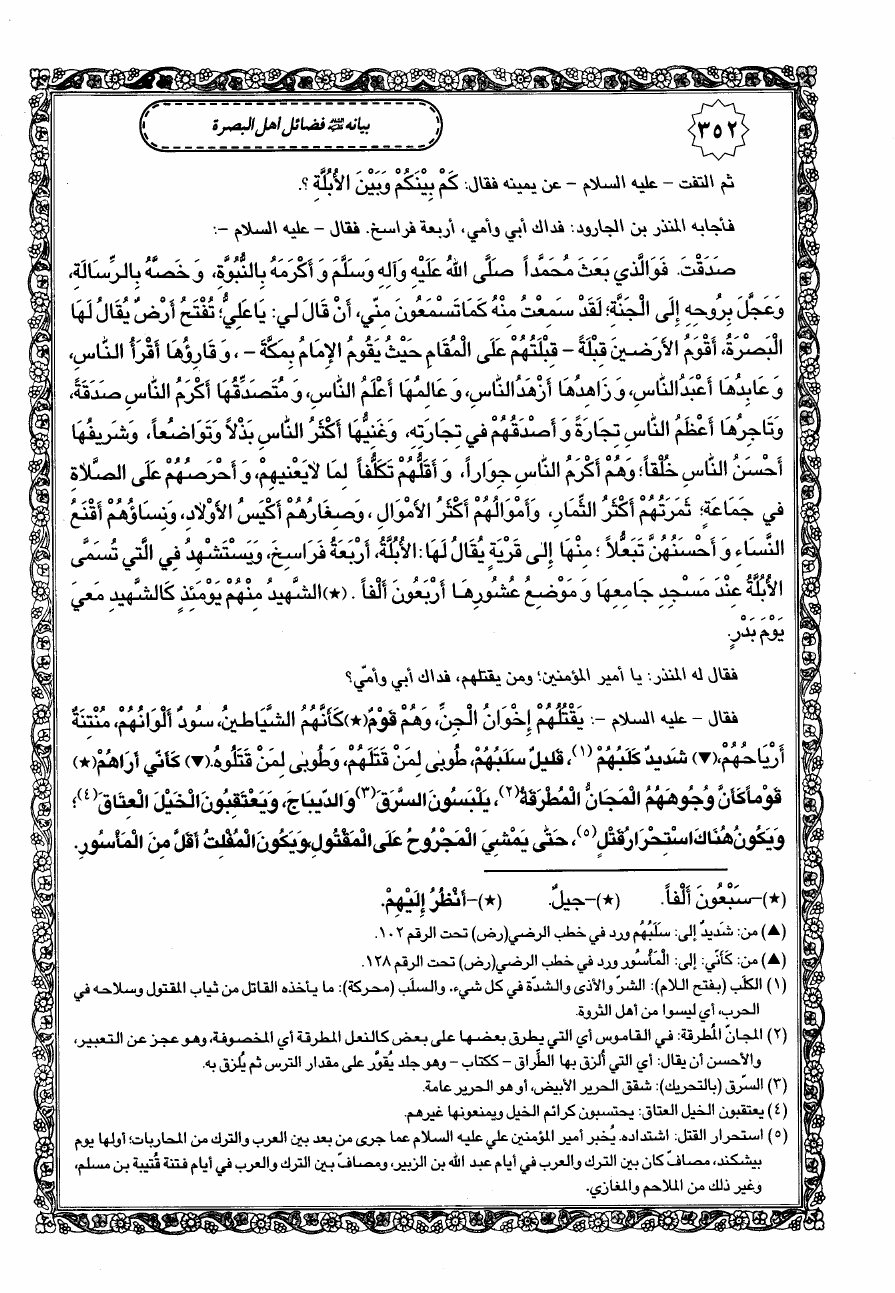 ٣٥٢
بيانه عليه السلام فضائل اهل البصرة
ثم التفت - عليه السلام - عن يمينه فقال: كَمْ بَيْنَكُمْ وَبَيْنَ الأُبُلَّةِ ؟.
فأجابه المنذر بن الجارود: فداك أبي وأمي، أربعة فراسخ. فقال - عليه السلام -:
صَدَقْتَ. فَوَالَّذي بَعَثَ مُحَمَّداً صَلَّى اللهُ عَلَيْهِ وَآلِهِ وَسَلَّمَ وَ أَكْرَمَهُ بِالنُّبُوَّةِ، وَ خَصَّهُ بِالرِّسَالَةِ،
وَعَجَّلَ بِرُوحِهِ إِلَى الْجَنَّةِ؛ لَقَدْ سَمِعْتُ مِنْهُ كَمَا تَسْمَعُونَ مِنّي، أَنْ قَالَ لي: يَا عَلِيُّ؛ تُفْتَحُ أَرْضٌ يُقَالُ لَهَا
الْبَصْرَةُ، أَقْوَمُ الأَرَضينَ قِبْلَةً - قِبْلَتُهُمْ عَلَى الْمَقَامِ حَيْثُ يَقُومُ الإِمَامُ بِمَكَّةَ - ، وَ قَارِؤُهَا أَقْرَأُ النَّاسِ،
وَ عَابِدُهَا أَعْبَدُ النَّاسِ، وَ زَاهِدُهَا أَزْهَدُ النَّاسِ، وَ عَالِمُهَا أَعْلَمُ النَّاسِ، وَ مُتَصَدِّقُهَا أَكْرَمُ النَّاسِ صَدَقَةً،
وَتَاجِرُهَا أَعْظَمُ النَّاسِ تِجَارَةً وَ أَصْدَقُهُمْ في تِجَارَتِهِ، وَغَنِيُّهَا أَكْثَرُ النَّاسِ بَذْلاً وَتَوَاضُعاً، وَشَريفُهَا
أَحْسَنُ النَّاسِ خُلُقاً؛ وَهُمْ أَكْرَمُ النَّاسِ جِوَاراً، وَ أَقَلُّهُمْ تَكَلُّفاً لِمَا لاَيَعْنيهِمْ، وَ أَحْرَصُهُمْ عَلَى الصَّلاَةِ
في جَمَاعَةٍ؛ ثَمَرَتُهُمْ أَكْثَرُ الثِّمَارِ، وَأَمْوَالُهُمْ أَكْثَرُ الأَمْوَالِ، وَصِغَارُهُمْ أَكْيَسُ الأَوْلاَدِ، وَنِسَاؤُهُمْ أَقْنَعُ
النِّسَاءِ وَ أَحْسَنُهُنَّ تَبَعُّلاً ؛ مِنْهَا إِلى قَرْيَةٍ يُقَالُ لَهَا: الأُبُلَّةُ، أَرْبَعَةُ فَرَاسِخَ، وَيَسْتَشْهِدُ فِي الَّتي تُسَمَّى
الأُبُلَّةُ عِنْدَ مَسْجِدِ جَامِعِهَا وَ مَوْضِعِ عُشُورِهَا أَرْبَعُونَ أَلْفاً . (★)الشَّهيدُ مِنْهُمْ يَوْمَئِذٍ كَالشَّهيدِ مَعِيَ
يَوْمَ بَدْرٍ.
فقال له المنذر: يا أمير المؤمنين؛ ومن يقتلهم، فداك أبي وأمّي؟
فقال - عليه السلام -: يَقْتُلُهُمْ إِخْوَانُ الْجِنِّ، وَهُمْ قَوْمٌ(★)كَأَنَّهُمُ الشَّيَاطينُ، سُودٌ أَلْوَانُهُمْ، مُنْتِنَةٌ
أَرْيَاحُهُمْ،(▼) شَديدٌ كَلَبُهُمْ (١)، قَليلٌ سَلَبُهُمْ، طُوبى لِمَنْ قَتَلَهُمْ، وَطُوبى لِمَنْ قَتَلُوهُ.(▼) كَأَنّي أَرَاهُمْ(★)
قَوْماً كَأَنَّ وُجُوهَهُمُ الْمَجَانُّ الْمُطْرَقَةُ(٢)، يَلْبَسُونَ السَّرَقَ(٣) وَ الدّيبَاجَ، وَيَعْتَقِبُونَ الْخَيْلَ الْعِتَاقَ(٤)؛
وَيَكُونُ هُنَاكَ اسْتِحْرَارُ قَتْلٍ(٥)، حَتّى يَمْشِيَ الْمَجْرُوحُ عَلَى الْمَقْتُولِ، وَيَكُونَ الْمُفْلِتُ أَقَلَّ مِنَ الْمَأْسُورِ.
(★)-سَبْعُونَ أَلْفاً. (★)-جيلٌ. (★)-أَنْظُرُ إِلَيْهِمْ.
(▲) من: شَديدٌ إلى: سَلَبُهُم ورد في خطب الرضي(رض) تحت الرقم ١٠٢.
(▲) من: كَأَنّي: إلى: الْمَأْسُور ورد في خطب الرضي(رض) تحت الرقم ١٢٨.
(١) الكلَب (بفتح اللام): الشرّ والأذى والشدّة في كل شيء. والسلَب (محركة): ما يأخذه القاتل من ثياب المقتول وسلاحه في
الحرب، أي ليسوا من أهل الثروة.
(٢) المجانّ المُطرقة: في القاموس أي التي يطرق بعضها على بعض كالنعل المطرقة أي المخصوفة، وهو عجز عن التعبير،
والأحسن أن يقال: أي التي أُلزق بها الطِّراق - ككتاب - وهو جلد يُقوَّر على مقدار الترس ثم يُلزق به.
(٣) السّرق (بالتحريك): شقق الحرير الأبيض، أو هو الحرير عامة.
(٤) يعتقبون الخيل العتاق: يحتسبون كرائم الخيل ويمنعونها غيرهم.
(٥) استحرار القتل: اشتداده. يُخبر أمير المؤمنين علي عليه السلام عما جرى من بعد بين العرب والترك من المحاربات؛ أولها يوم
بيشكند، مصافّ كان بين الترك والعرب في أيام عبد الله بن الزبير، ومصافّ بين الترك والعرب في أيام فتنة قُتيبة بن مسلم،
وغير ذلك من الملاحم والمغازي.